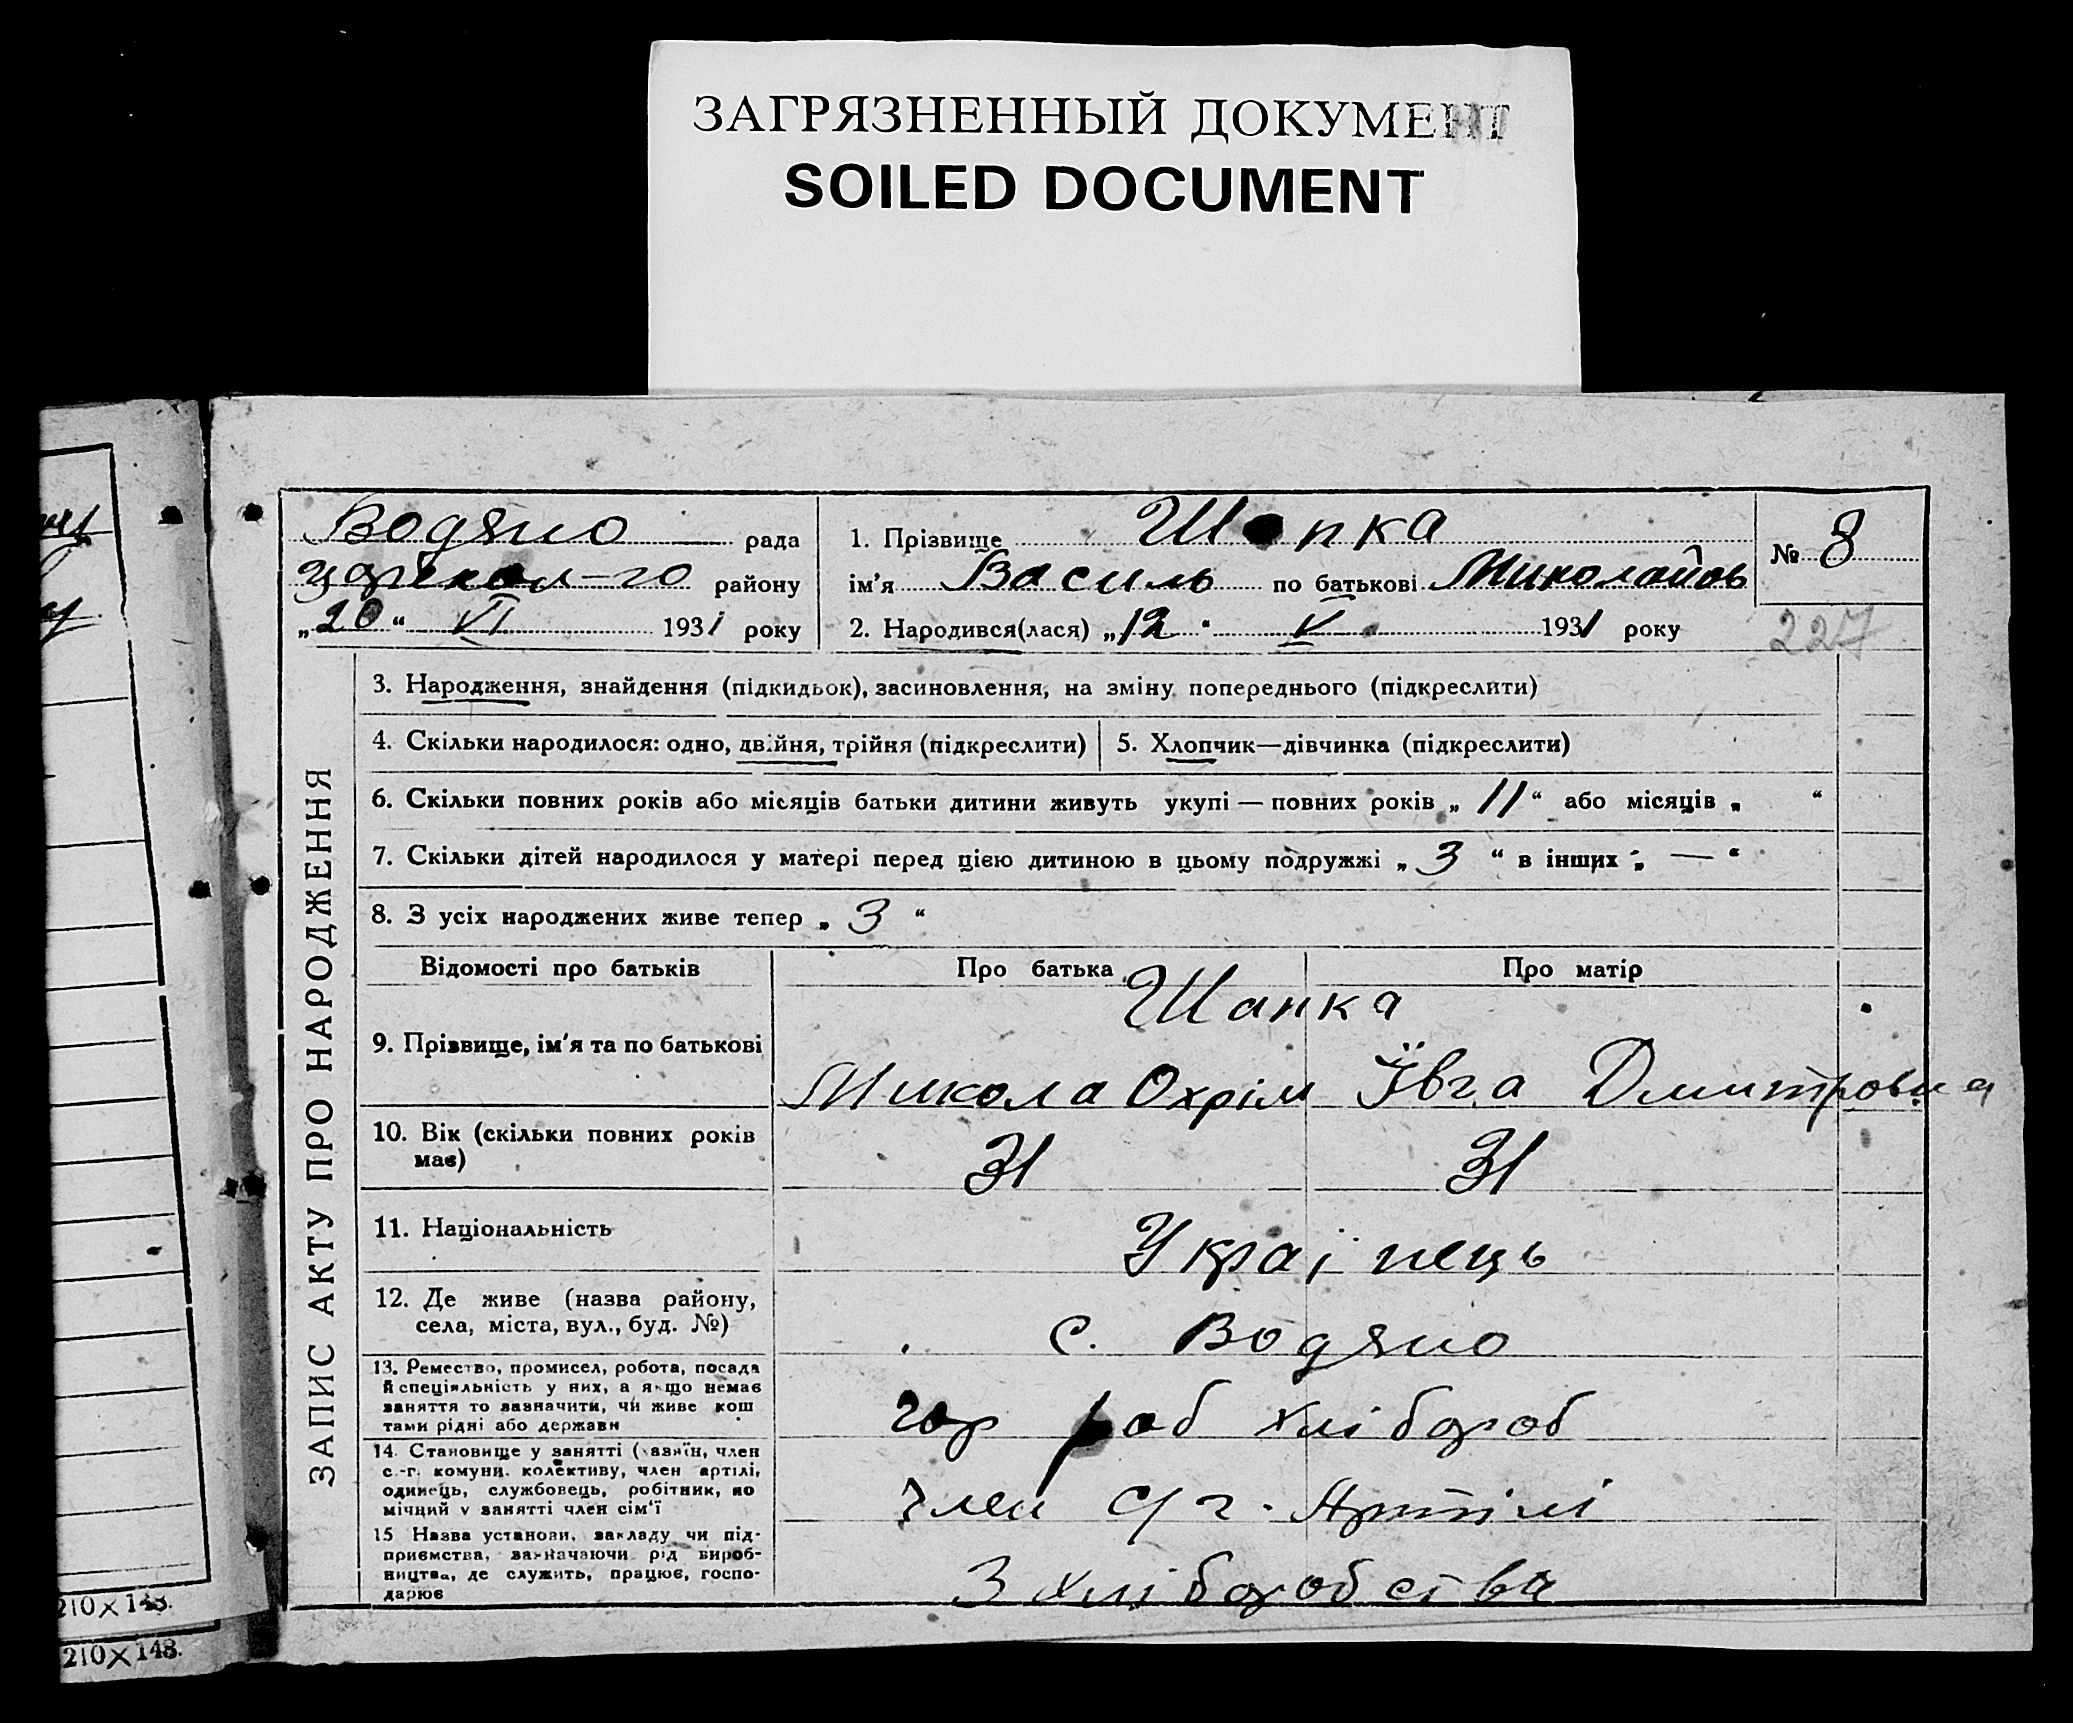 ЗАГРЯЗНЕННЫЙ ДОКУМЕНТ
SOILED DOCUMENT
Водяно рада
району
„20“ VI 1931 року
1. Прізвище Шапка
ім'я Василь по батькові Миколайов
2. Народився(лася) „12“ V 1931 року
№ 8
227
ЗАПИС АКТУ ПРО НАРОДЖЕННЯ
3. Народження, знайдення (підкидьок), засиновлення, на зміну попереднього (підкреслити)
4. Скільки народилося: одно, двійня, трійня (підкреслити)
5. Хлопчик—дівчинка (підкреслити)
6. Скільки повних років або місяців батьки дитини живуть укупі — повних років „ 11 “ або місяців „ “
7. Скільки дітей народилося у матері перед цією дитиною в цьому подружжі „ 3 “ в інших „ — “
8. З усіх народжених живе тепер „ 3 “
Відомості про батьків Про батька Про матір
Шапка
9. Прізвище, ім'я та по батькові
Микола Охрім Ївга Дмитровна
10. Вік (скільки повних років
має)
31 31
11. Національність
Украінець
12. Де живе (назва району,
села, міста, вул., буд. №)
с. Водяно
13. Ремество, промисел, робота, посада
й спеціяльність у них, а якщо немає
заняття то зазначити, чи живе кош
тами рідні або держави
роб хлібороб
14. Становище у занятті (хазяїн, член
с.-г. комуни, колективу, член артілі,
одинець, службовець, робітник, по
мічний у занятті член сім'ї
Член С/г. Артілі
15 Назва установи, закладу чи під-
приємства, зазначаючи рід вироб-
ництва, де служить, працює, госпо-
дарює
З хліборобства
210×148.
210×148.